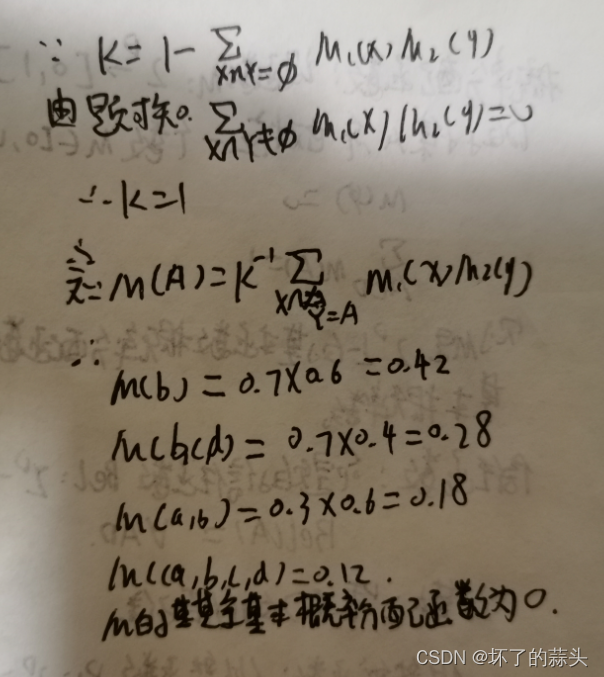 ∵ K = 1 - Σ X∩Y=∅ m₁(x) m₂(y)
由题 Σ X∩Y≠∅ m₁(x) m₂(y) = 0
∴ K=1
m(A) = K⁻¹ Σ X∩Y=A m₁(x) m₂(y)
∴
m(b) = 0.7×0.6 = 0.42
m(b,c,d) = 0.7×0.4 = 0.28
m(a,b) = 0.3×0.6 = 0.18
m(a,b,c,d) = 0.12.
m的其余基本概率分配函数为0.
CSDN @坏了的蒜头